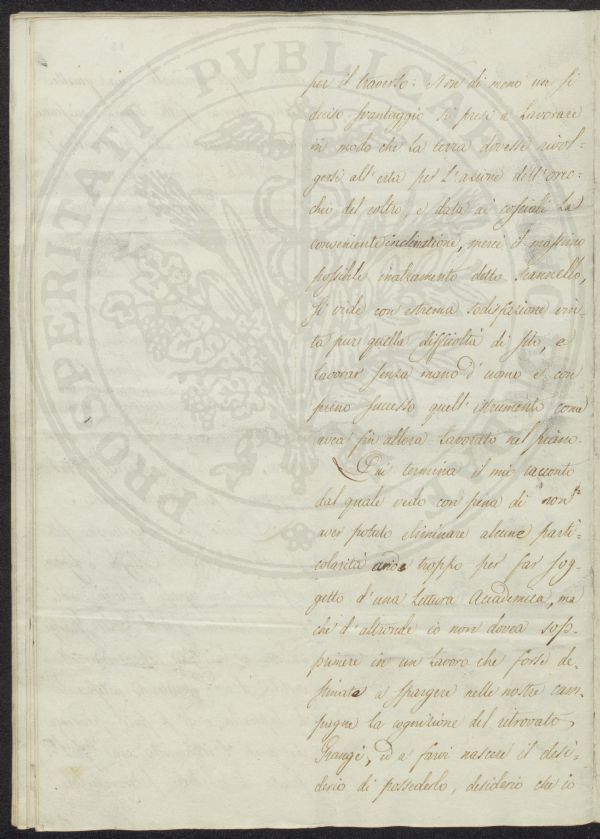 per il traverso: Non di meno un sì
deciso svantaggio si prese a lavorare
in modo che la terra dovesse rivol-
gersi all'erta per l'azione dell'orec-
chio del coltro, e data ai cosciali la
conveniente inclinazione, mercè il massimo
possibile inalzamento dello scannello,
si vide con estrema sodisfazione vin-
ta pur quella difficoltà di sito, e
lavorar senza mano d'uomo e con
pieno successo quell'istrumento come
avea fin allora lavorato nel piano.
Quì termina il mio racconto
dal quale vedo con pena di non
aver potuto eliminare alcune parti-
colarità aride troppo per far sog-
getto d'una Lettura Accademica, ma
che d'altronde io non dovea sop-
primere in un lavoro che forse de-
stinato a spargere nelle nostre cam-
pagne la cognizione del ritrovato
Grangé, ed a farvi nascere il desi-
derio di possederlo, desiderio che io
PROSPERITATI PVBLICAE